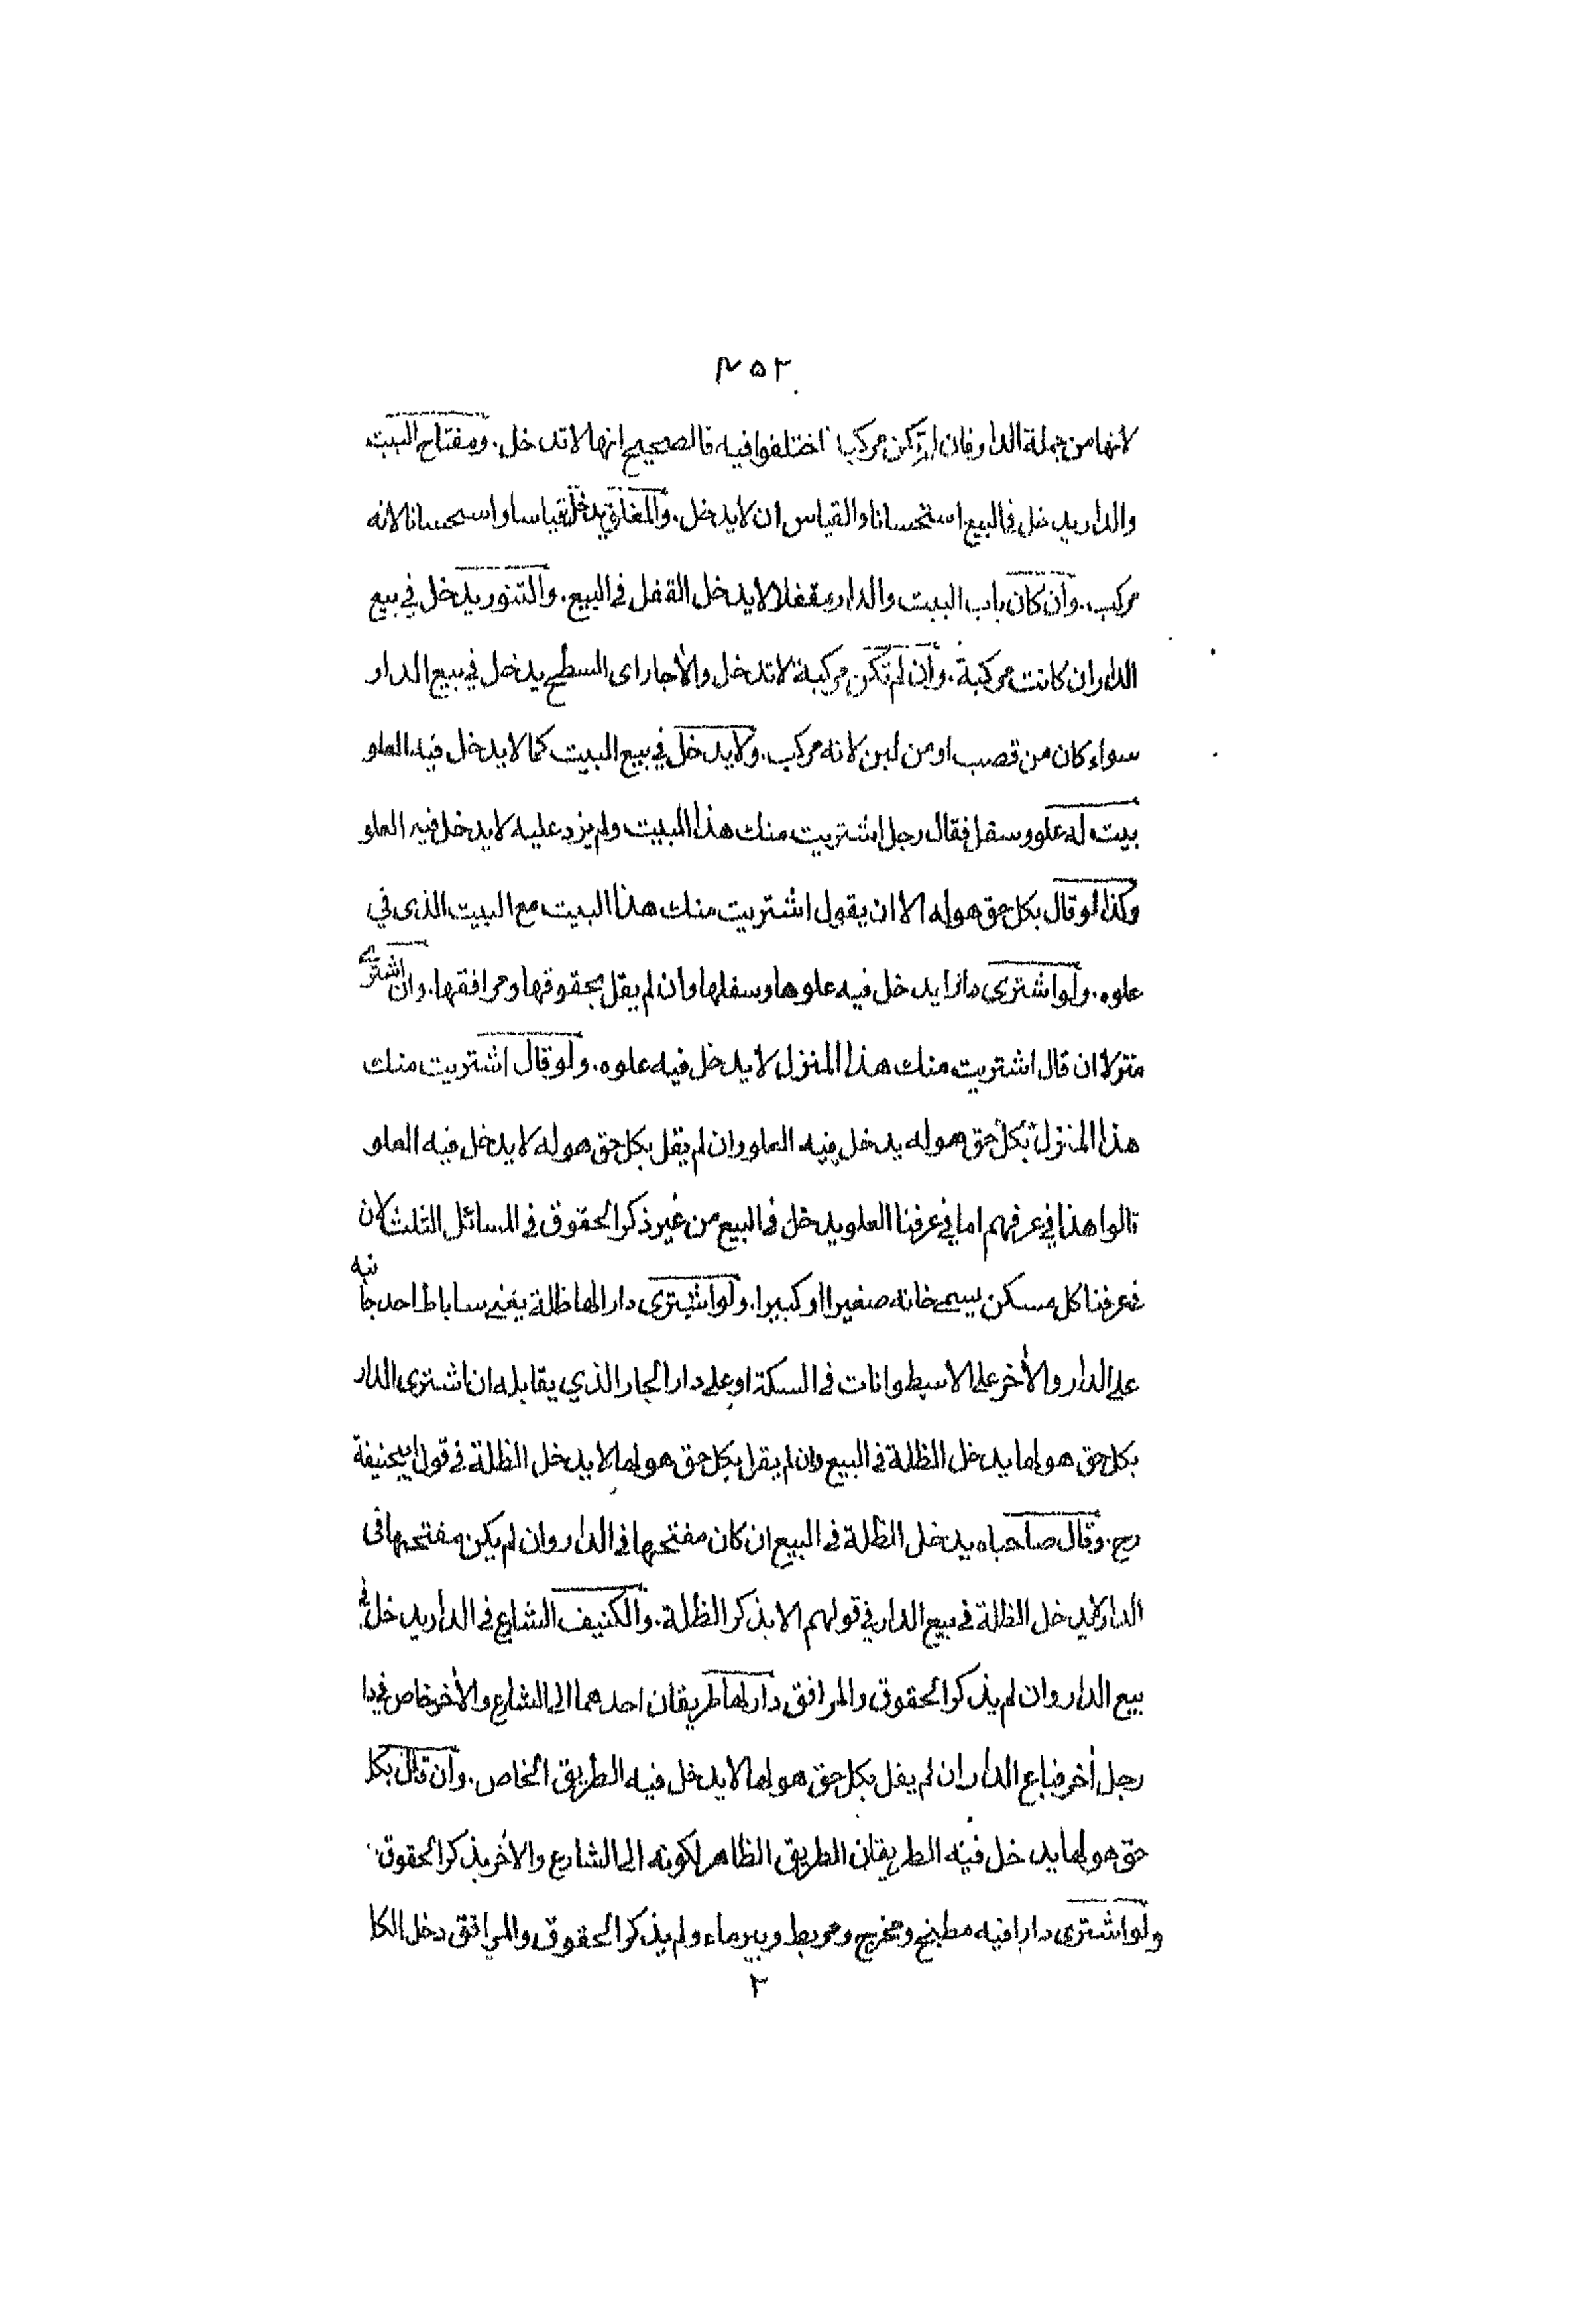 ٤٥٢
لانها من جملة الدار وفان لم تكن مركبا اختلفوا فيه فالصحيح انها لا تدخل. ومفتاح البيت
والدار يدخل في البيع استحسانا والقياس ان لا يدخل. والمغلق يدخل قياسا واستحسانا لانه
مركب. وان كان باب البيت والدار مقفلا لا يدخل القفل في البيع. والتنور يدخل في بيع
الدار ان كانت مركبة. وان لم تكن مركبة لا تدخل والأجار اى السطح يدخل في بيع الدار
سواء كان من قصب او من لبن لانه مركب. ولا يدخل في بيع البيت كما لا يدخل فيه العلو
بيت له علو وسفل فقال رجل اشتريت منك هذا البيت ولم يزد عليه لا يدخل فيه العلو
وكذا لو قال بكل حق هو له الا ان يقول اشتريت منك هذا البيت مع البيت الذى في
علوه. ولو اشترى دارا يدخل فيه علوها وسفلها وان لم يقل بحقوقها ومرافقها. وان اشترى
منزلا ان قال اشتريت منك هذا المنزل لا يدخل فيه علوه. ولو قال اشتريت منك
هذا المنزل بكل حق هو له يدخل فيه العلو وان لم يقل بكل حق هو له لا يدخل فيه العلو
قالوا هذا في عرفهم اما في عرفنا العلو يدخل في البيع من غير ذكر الحقوق في المسائل الثلث لان
في عرفنا كل مسكن يسمى خانه صغيرا او كبيرا. ولو اشترى دارا لها ظلة يعنى ساباط احد جانبه
على الدار والأخر على الاسطوانات في السكة او على دار الجار الذي يقابله ان اشترى الدار
بكل حق هو لها يدخل الظلة في البيع وان لم يقل بكل حق هو لها لا يدخل الظلة في قول ابيحنيفة
رح. وقال صاحباه يدخل الظلة في البيع ان كان مفتحها في الدار وان لم يكن مفتحها فى
الدار لا يدخل الظلة في بيع الدار في قولهم الا بذكر الظلة. والكنيف الشارع في الدار يدخل في
بيع الدار وان لم يذكر الحقوق والمرافق دار لها طريقان احدهما الى الشارع والأخر خاص في دا
رجل أخر فباع الدار ان لم يقل بكل حق هو لها لا يدخل فيه الطريق الخاص. وان قال بكل
حق هو لها يدخل فيه الطريقان الطريق الظاهر لكونه الى الشارع والأخر بذكر الحقوق
ولو اشترى دارا فيه مطبخ ومخرج ومربط وبير ماء ولم يذكر الحقوق والمرافق دخل الكا
٢